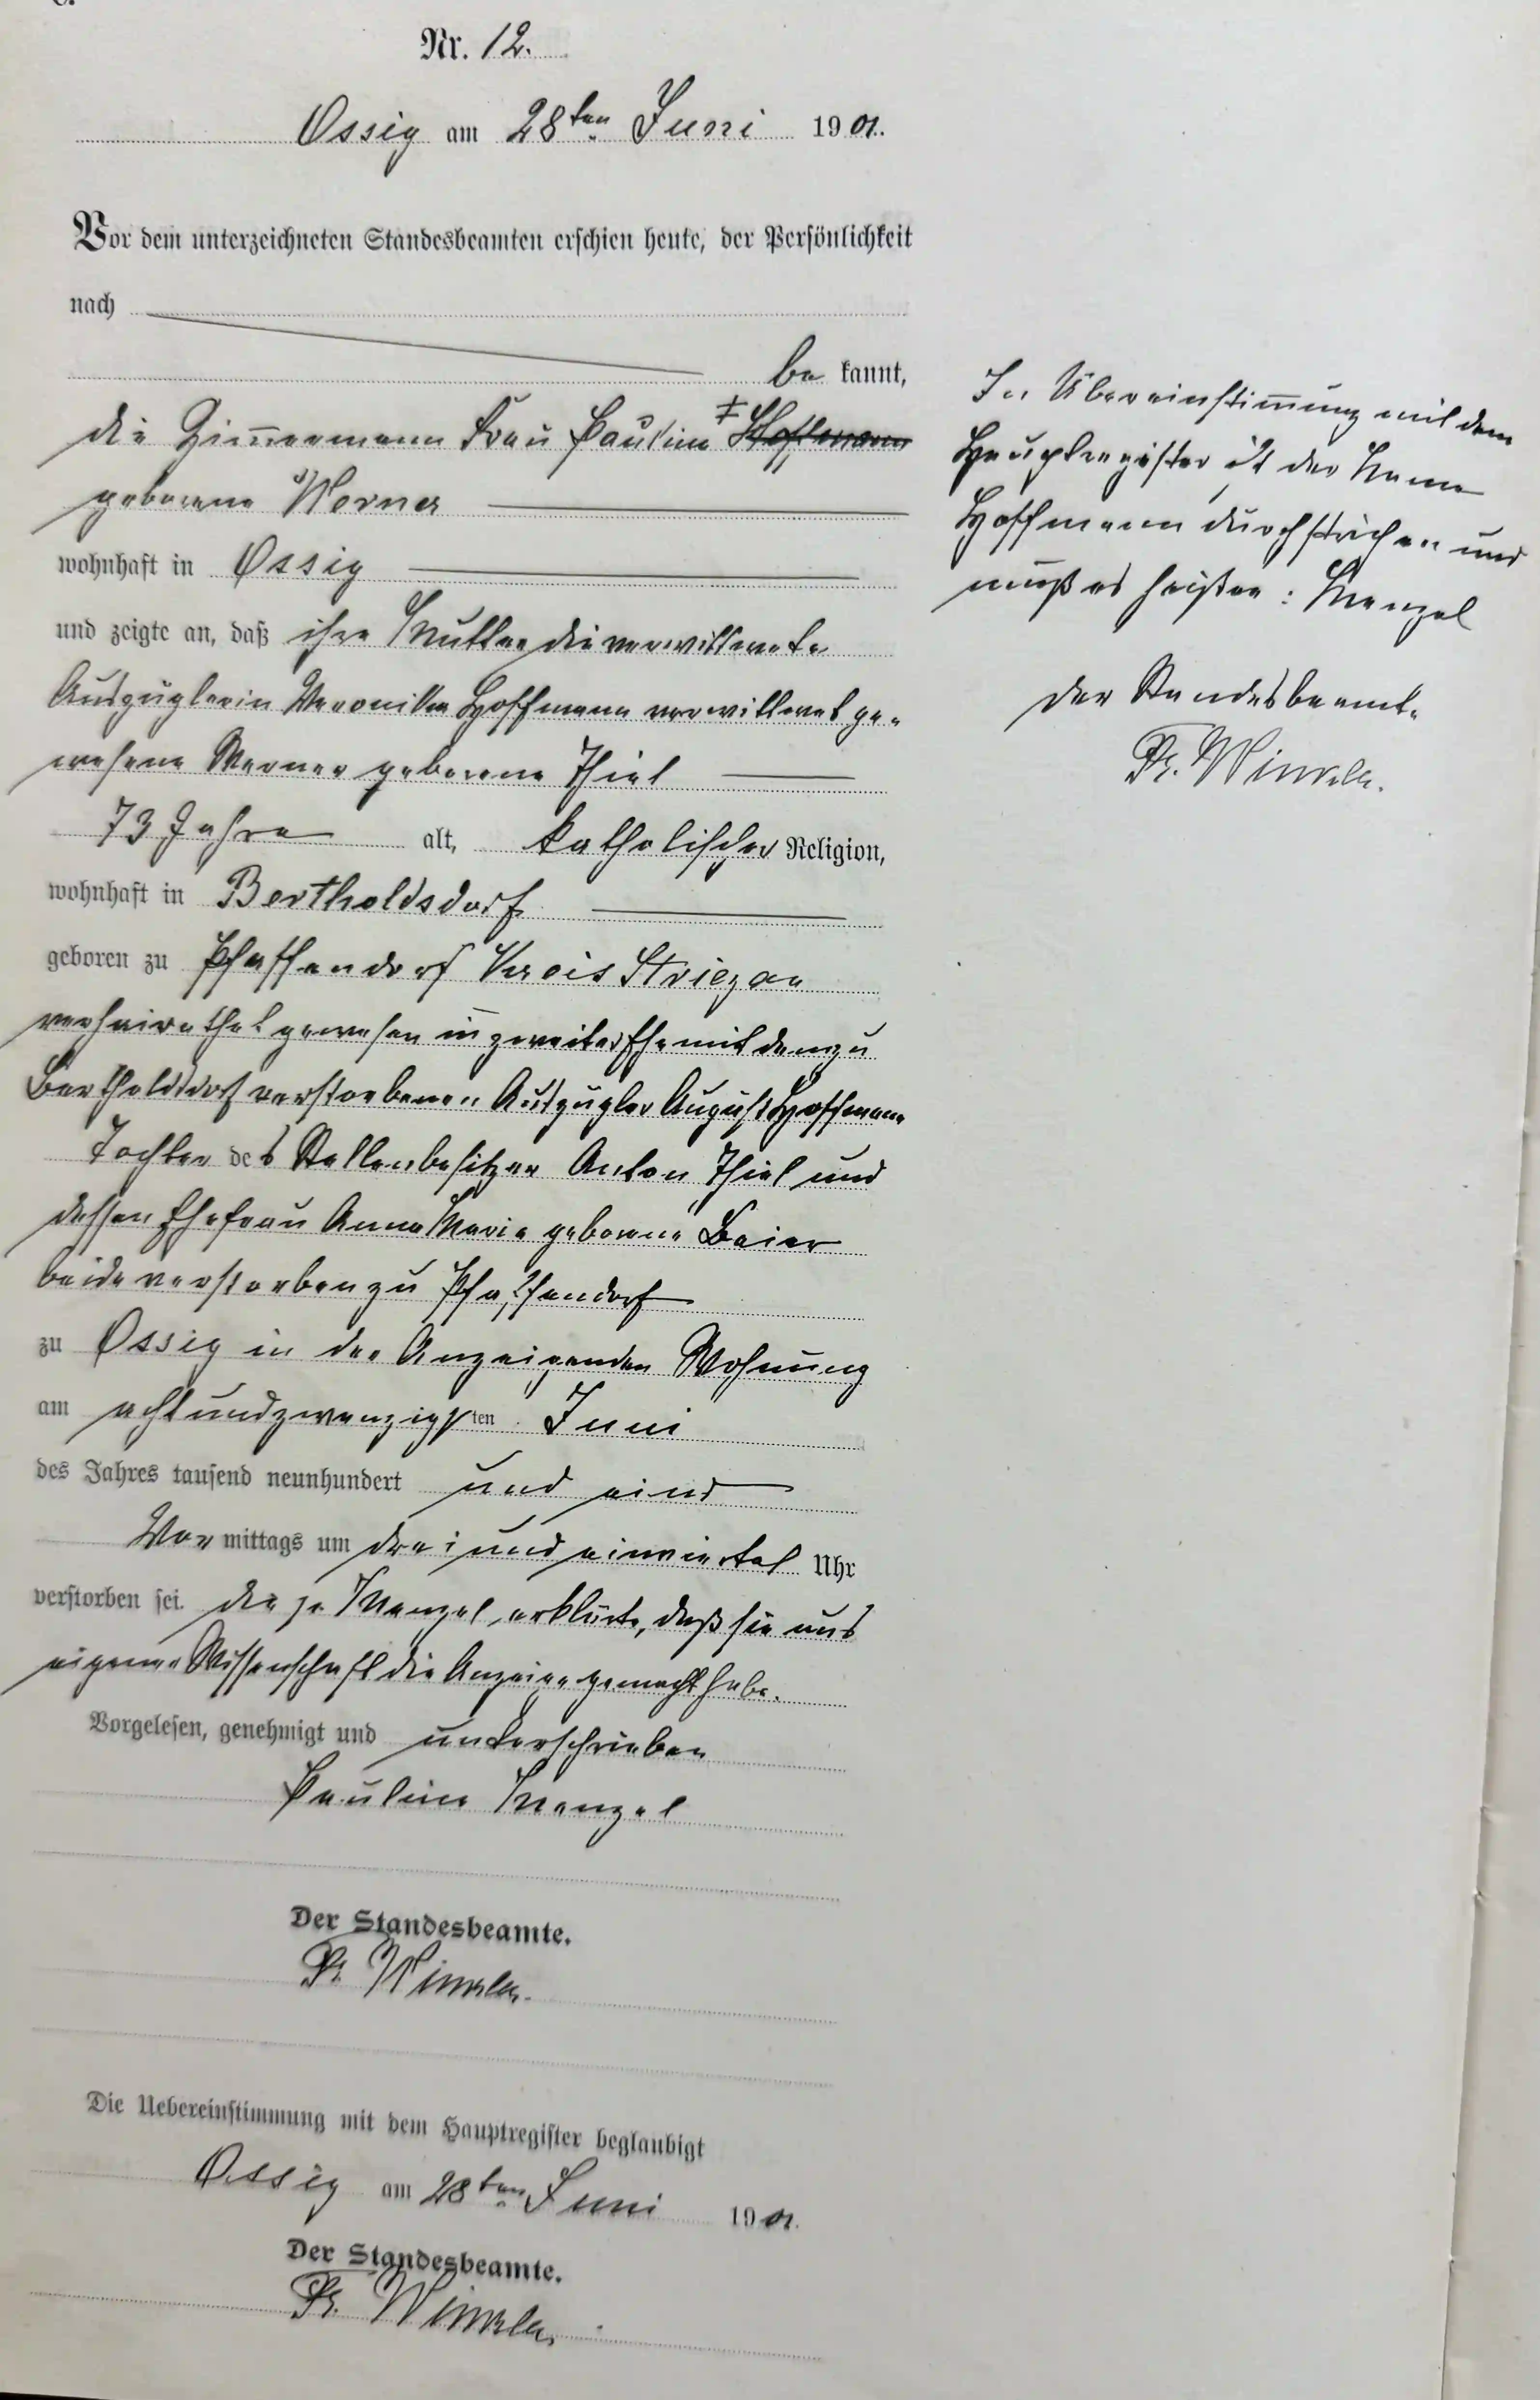 Nr. 12.
Ossig am 28ten Juni 1901.
Vor dem unterzeichneten Standesbeamten erschien heute, der Persönlichkeit
nach
be kannt,
die Zimmermann Frau Pauline ‡ Hoffmann
geborene Werner
wohnhaft in Ossig
und zeigte an, daß ihre Mutter die verwittwete
Auszüglerin Veronika Hoffmann verwittwet ge-
wesene Werner geborene Thiel
73 Jahre alt, katholischer Religion,
wohnhaft in Bertholdsdorf
geboren zu Pfaffendorf Kreis Striegau
verheirathet gewesen in zweiter Ehe mit dem zu
Bertholdsdorf verstorbenen Auszügler August Hoffmann
Tochter des Stellenbesitzer Anton Thiel und
dessen Ehefrau Anna Marie geborene Beier
beide verstorben zu Pfaffendorf
zu Ossig in der Anzeigenden Wohnung
am achtundzwanzigsten Juni
des Jahres tausend neunhundert und eins
Vor mittags um drei und einviertel Uhr
verstorben sei. die p. Menzel erklärte, daß sie aus
eigener Wissenschaft die Anzeige gemacht habe.
Vorgelesen, genehmigt und unterschrieben
Pauline Menzel
Der Standesbeamte.
Fr. Winkler.
Die Uebereinstimmung mit dem Hauptregister beglaubigt
Ossig am 28ten Juni 1901.
Der Standesbeamte.
Fr. Winkler.
In Übereinstimmung mit dem
Hauptregister ist der Name
Hoffmann durchstrichen und
muß es heißen: Menzel
Der Standesbeamte
Fr. Winkler.